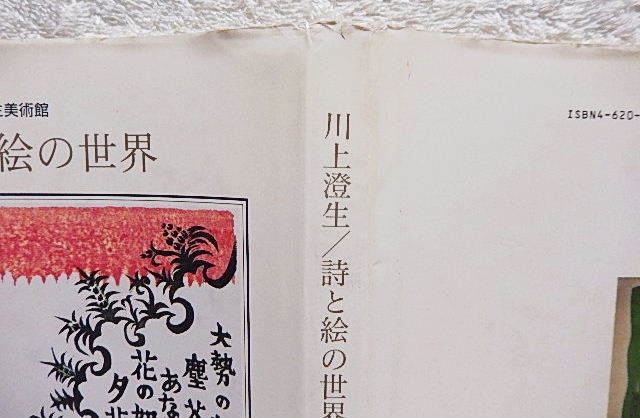 生美術館
絵の世界
大勢の
塵
あな
花の
夕
川上澄生/詩と絵の世界
ISBN4-620-